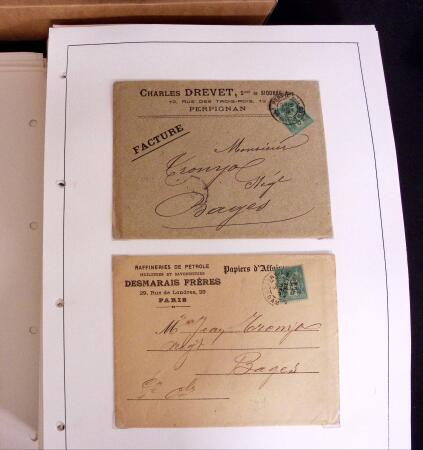 CHARLES DREVET,
10, RUE DES TROIS-ROIS, 10
PERPIGNAN
FACTURE
Monsieur
Tronyo
Négt
Bages
RAFFINERIES DE PÉTROLE
HUILERIES ET SAVONNERIES
DESMARAIS FRÈRES
29, Rue de Londres, 29
PARIS
Papiers d'Affaires
Mr Jean Tronyo
negt
Bages